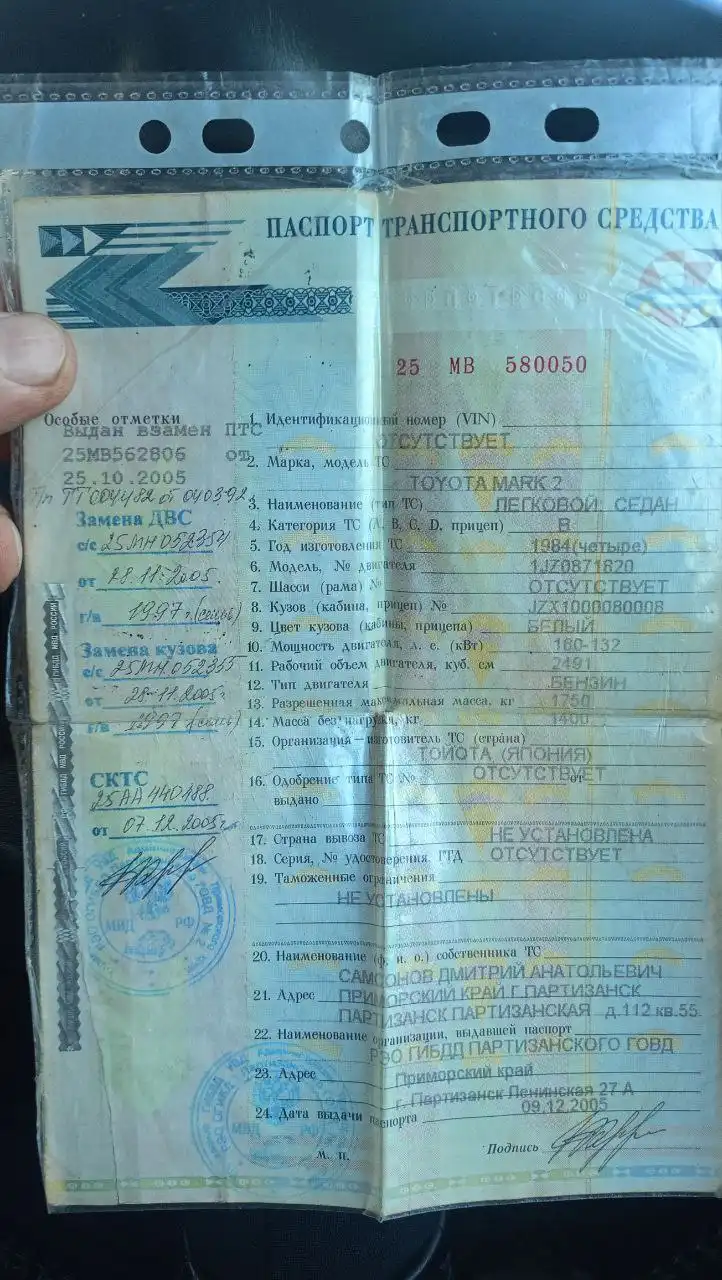 ПАСПОРТ ТРАНСПОРТНОГО СРЕДСТВА
25 МВ 580050
Особые отметки
Выдан взамен ПТС
25МВ562806 от
25.10.2005
Замена ДВС
с/с 25МН052354
от 28.11.2005.
г/в 1997г.
Замена кузова
с/с 25МН052355
от 28-11.2005г
г/в 1997
СКТС
25АА440488.
от 07.12.2005г
МВД РФ
1. Идентификационный номер (VIN)
ОТСУТСТВУЕТ
2. Марка, модель ТС
TOYOTA MARK 2
3. Наименование (тип ТС) ЛЕГКОВОЙ, СЕДАН
4. Категория ТС (А, В, С, D, прицеп) В
5. Год изготовления ТС 1984(четыре)
6. Модель, № двигателя 1JZ0871820
7. Шасси (рама) № ОТСУТСТВУЕТ
8. Кузов (кабина, прицеп) № JZX1000080008
9. Цвет кузова (кабины, прицепа) БЕЛЫЙ
10. Мощность двигателя, л. с. (кВт) 180-132
11. Рабочий объем двигателя, куб. см 2491
12. Тип двигателя БЕНЗИН
13. Разрешенная максимальная масса, кг 1750
14. Масса без нагрузки, кг 1400
15. Организация—изготовитель ТС (страна)
ТОЙОТА (ЯПОНИЯ)
16. Одобрение типа ТС № ОТСУТСТВУЕТ
от
выдано
17. Страна вывоза ТС НЕ УСТАНОВЛЕНА
18. Серия, № удостоверения, ГТД ОТСУТСТВУЕТ
19. Таможенные ограничения
НЕ УСТАНОВЛЕНЫ
20. Наименование (ф. и. о.) собственника ТС
САМСОНОВ ДМИТРИЙ АНАТОЛЬЕВИЧ
21. Адрес ПРИМОРСКИЙ КРАЙ Г ПАРТИЗАНСК
ПАРТИЗАНСК ПАРТИЗАНСКАЯ д.112 кв.55
22. Наименование организации, выдавшей паспорт
РЭО ГИБДД ПАРТИЗАНСКОГО ГОВД
23. Адрес Приморский край
г. Партизанск Ленинская 27 А
24. Дата выдачи паспорта 09.12.2005
М. П.
Подпись